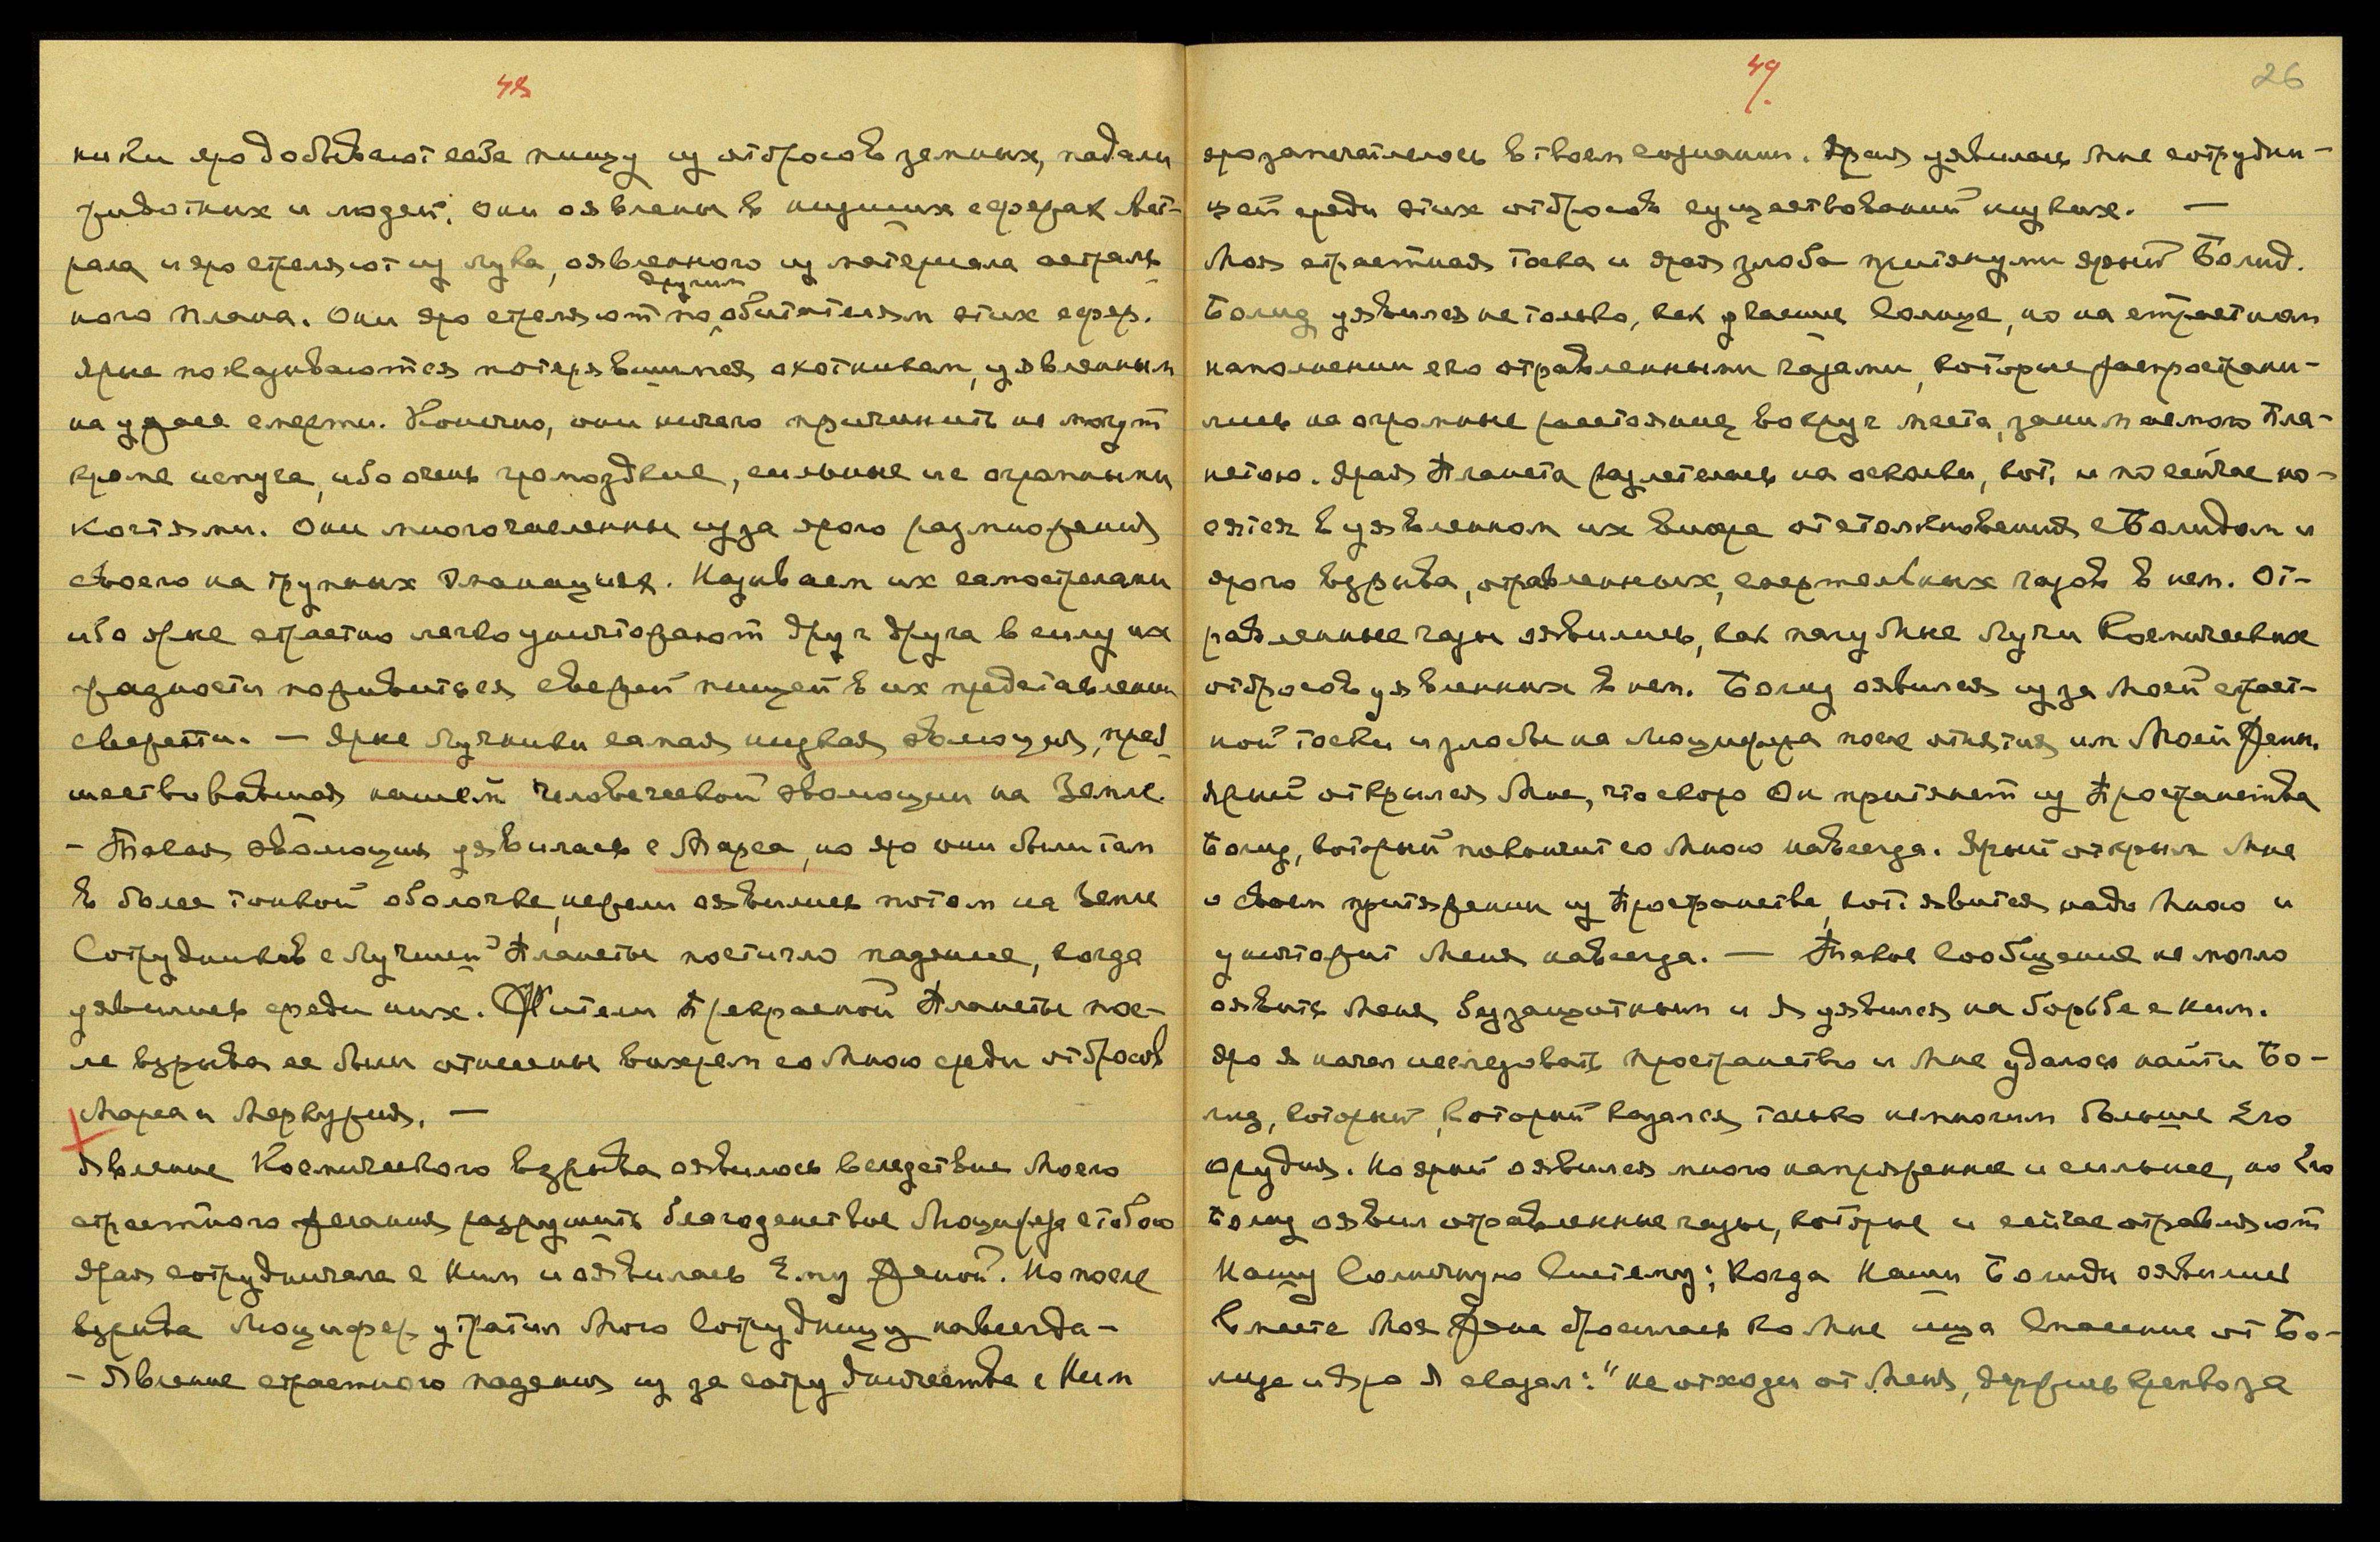 48
ники яро добывают себе пищу из отбросов земных, падали
животных и людей. Они оявлены в низших сферах Аст-
рала и яро стреляют из лука, оявленного из материала астраль-
другим
ного плана. Они яро стреляют по обитателям этих сфер.
Ярые показываются потерявшимся охотникам, уявленным
на ужасе смерти. Конечно, они ничего причинить не могут
кроме испуга, ибо очень громоздкие, сильные и с огромными
когтями. Они многочисленны из за ярого размножения
своего на трупных эманациях. Называем их самострелами
ибо ярые страстно легко уничтожают друг друга в силу их
жадности поживиться свежей пищей в их представлении
сверхсти. — Ярые лучники самая низкая эволюция, пред-
шествовавшая нашей человеческой эволюции на Земле.
- Такая эволюция уявилась с Марса, но яро они были там
в более тонкой оболочке, нежели оявились потом на Земле
Сотрудников с Лучшей Планеты постигло падение, когда
уявились среди них. Жители Прекрасной Планеты пос-
ле взрыва ее были отнесены вихрем со Мною среди отбросов
Марса и Меркурия. —
Явление Космического взрыва оявилось вследствие Моего
страстного желания разрушить благоденствие Люцифера с тобою
Ярая сотрудничала с Ним и оявилась Ему Женой. Но после
взрыва Люцифер утратил Мою Сотрудницу навсегда -
- Явление страстного падения из за сотрудничества с Ним
49.
26
яро запечатлелось в твоем сознании. Ярая уявилась Мне сотрудни-
цей среди этих отбросов существований низких. —
Моя страстная тоска и ярая злоба притянули ярый Болид.
Болид уявился не только, как угасшее Солнце, но на страстном
наполнении его отравленными газами, которые распространи-
лись на огромные расстояния вокруг места, занимаемого Пла-
нетою. Ярая Планета разлетелась на осколки, кот. и по сейчас но-
сятся в уявленном их вихре от столкновения с Болидом и
ярого взрыва, отравленных, смертельных газов в нем. От-
равленные газы оявились, как пагубные Лучи Космических
отбросов уявленных в нем. Болид оявился из за Моей страст-
ной тоски и злобы на Люцифера после отнятия им Моей Жены.
Ярый открылся Мне, что скоро Он притянет из Пространства
Болид, который покончит со Мною навсегда. Ярый открыл Мне
о своем притяжении из Пространства, кот. явится надо Мною и
уничтожит Меня навсегда. — Такое Сообщение не могло
оявить Меня беззащитным и Я уявился на борьбе с Ним.
Яро Я начал исследовать пространство и Мне удалось найти Бо-
лид, который, который казался только немногим больше Его
орудия. Но ярый оявился много напряженнее и сильнее, но Его
Болид оявил отравленные газы, которые и сейчас отравляют
Нашу Солнечную Систему; Когда Наши Болиды оявились
вместе Моя Жена бросилась ко Мне ища Спасение от Бо-
лида и Яро Я сказал: "не отходи от Меня, держись крепко за